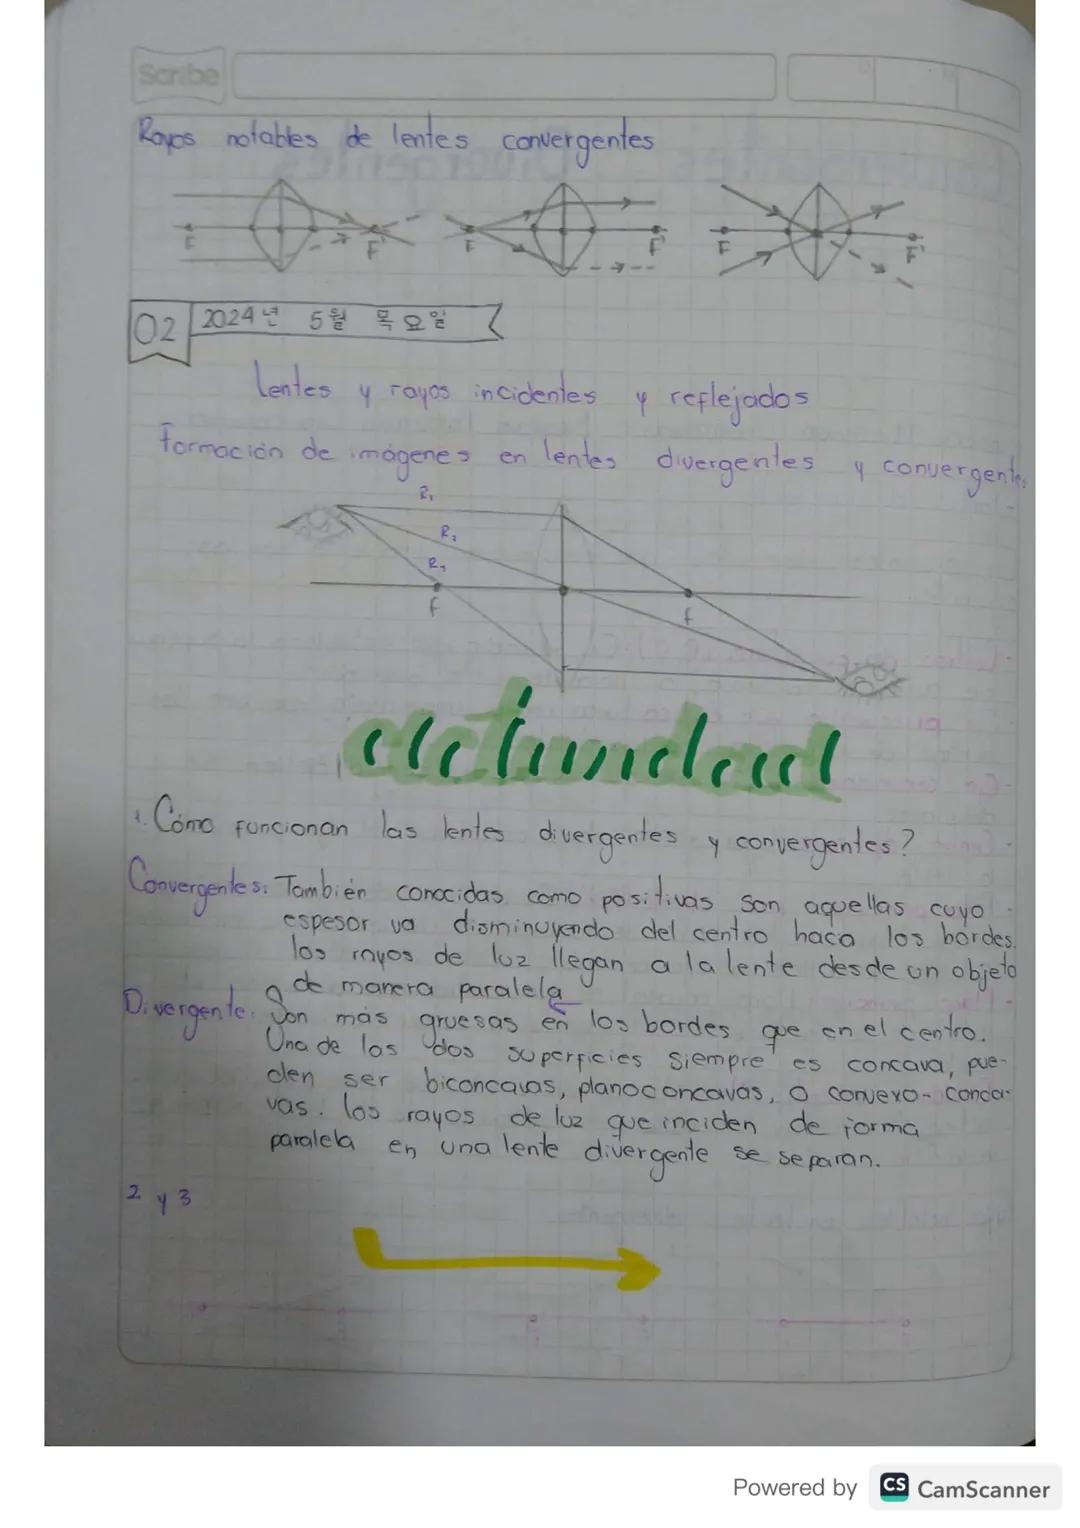 Scribe
Rayos notables de lentes convergentes
F F' F F' F F'
02 2024년 5월 목요일
lentes y rayos incidentes y reflejados
Formación de imágenes en lentes divergentes y convergentes
R₁
R₂
R₃
f f
actividad
1. Cómo funcionan las lentes divergentes y convergentes?
Convergentes: También conocidas como positivas son aquellas cuyo
espesor va disminuyendo del centro haca los bordes.
los rayos de luz llegan a la lente desde un objeto
de manera paralela
Divergente: Son más gruesas en los bordes que en el centro.
Una de los dos superficies siempre es concava, pue-
den ser biconcavas, planoconcavas, o convexo-conca-
vas. los rayos de luz que inciden de forma
paralela en una lente divergente se separan.
2 y 3
Powered by CS CamScanner